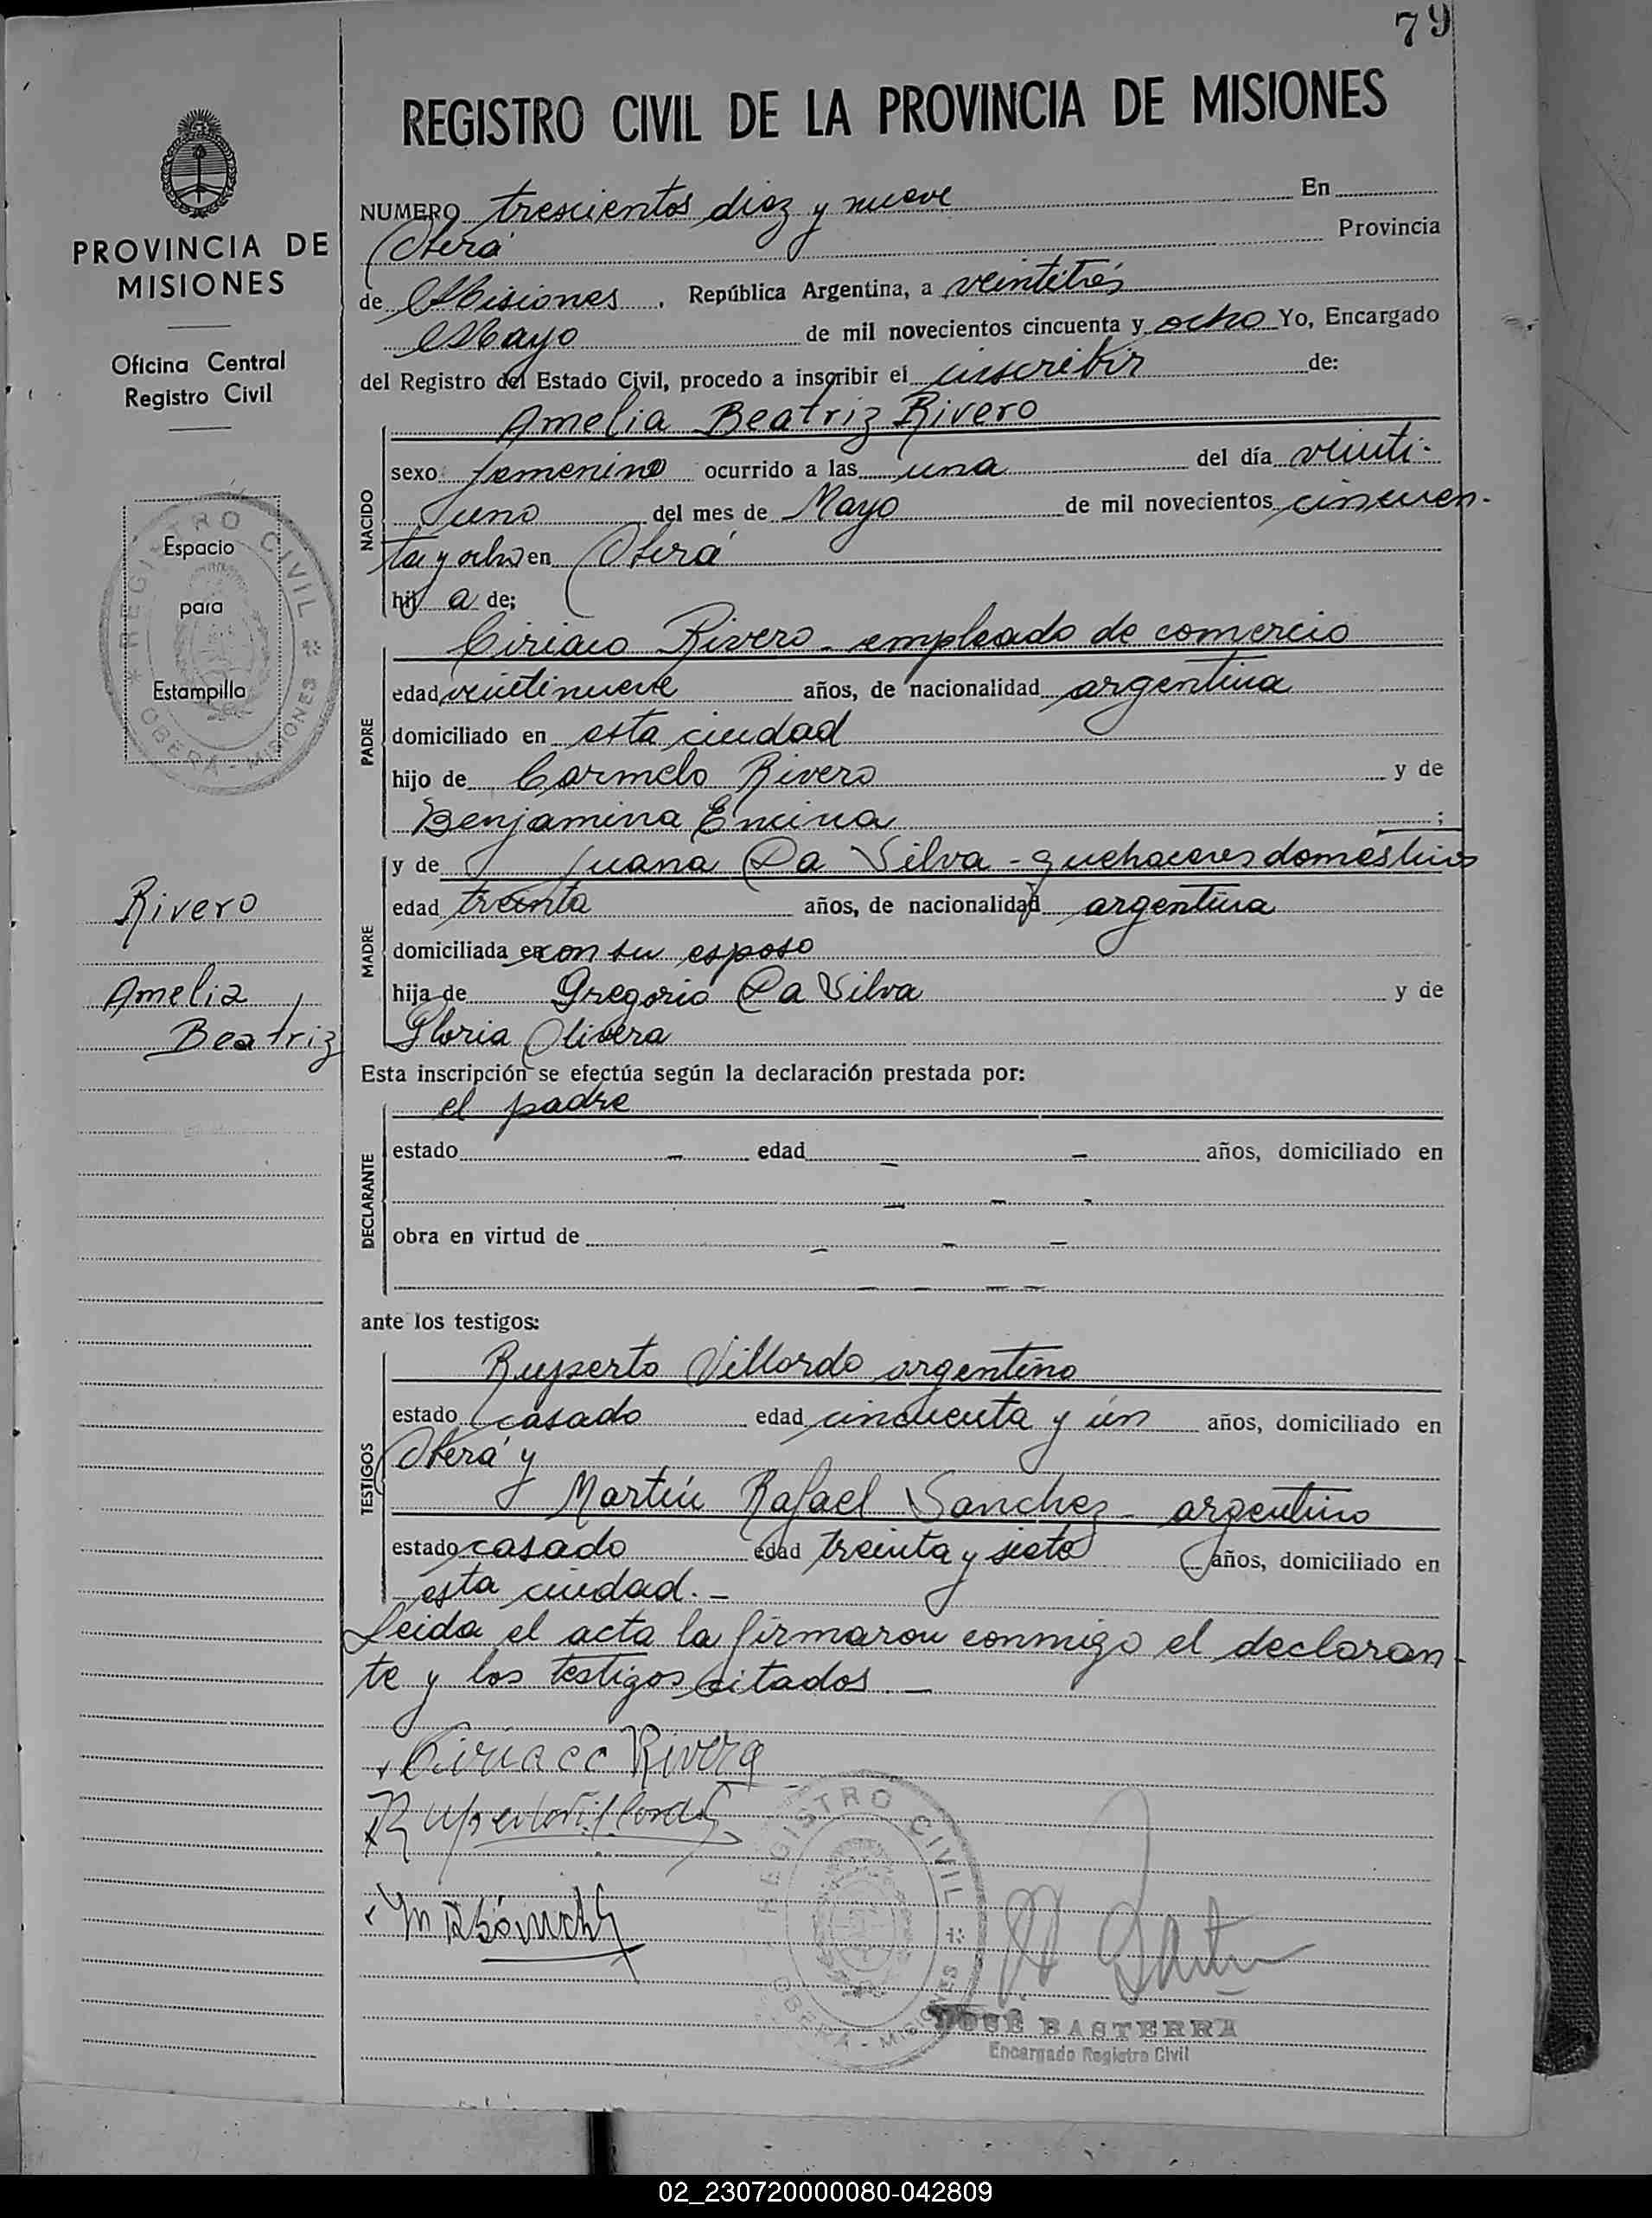 79
REGISTRO CIVIL DE LA PROVINCIA DE MISIONES
PROVINCIA DE
MISIONES
Oficina Central
Registro Civil
REGISTRO CIVIL
OBERA - MISIONES
Espacio
para
Estampilla
Rivero
Amelia
Beatriz
NUMERO trescientos diez y nueve En
Oberá Provincia
de Misiones, República Argentina, a veintitrés
Mayo de mil novecientos cincuenta y ocho Yo, Encargado
del Registro del Estado Civil, procedo a inscribir el inscribir de:
NACIDO
Amelia Beatriz Rivero
sexo femenino ocurrido a las una del día veinti-
uno del mes de Mayo de mil novecientos cincuen-
ta y ocho en Oberá
hij a de;
PADRE
Ciriaco Rivero - empleado de comercio
edad veintinueve años, de nacionalidad argentina
domiciliado en esta ciudad
hijo de Carmelo Rivero y de
Benjamina Encina ;
MADRE
y de Juana Da Silva - quehaceres domésticos
edad treinta años, de nacionalidad argentina
domiciliada en con su esposo
hija de Gregorio Da Silva y de
Gloria Olivera
Esta inscripción se efectúa según la declaración prestada por:
DECLARANTE
el padre
estado - edad - - años, domiciliado en
- - -
obra en virtud de - - -
- - - -
ante los testigos:
TESTIGOS
Ruperto Villordo argentino
estado casado edad cincuenta y un años, domiciliado en
Oberá y
Martín Rafael Sanchez - argentino
estado casado edad treinta y siete años, domiciliado en
esta ciudad. -
Leida el acta la firmaron conmigo el declaran-
te y los testigos citados -
Ciriaco Rivero
Ruperto Villordo
M R Sánchez
REGISTRO CIVIL
OBERA - MISIONES
JOSÉ BASTERRA
Encargado Registro Civil
02_230720000080-042809